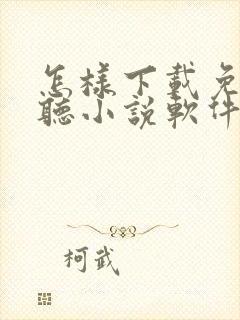 怎樣下載免
聽小說軟件
柯武